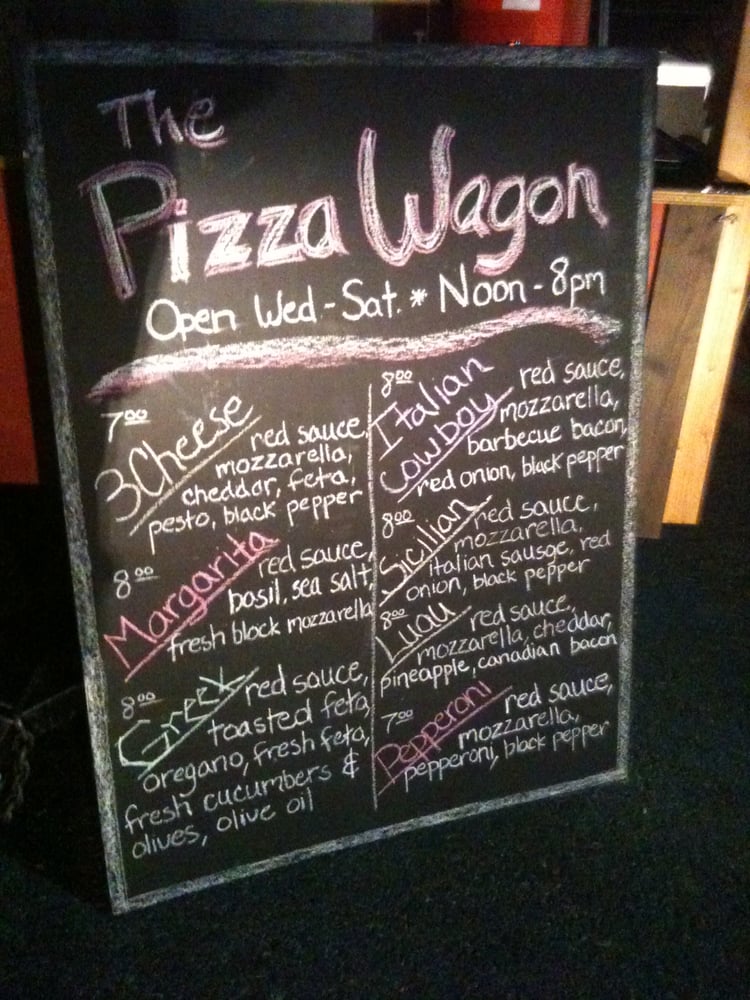 The
Pizza Wagon
Open Wed.-Sat. * Noon - 8pm
7⁰⁰
3 Cheese
red sauce,
mozzarella,
cheddar, feta,
pesto, black pepper
8⁰⁰
Margarita
red sauce,
basil, sea salt,
fresh block mozzarella
8⁰⁰
Greek
red sauce,
toasted feta,
oregano, fresh feta,
fresh cucumbers &
olives, olive oil
8⁰⁰
Italian
Cowboy
red sauce,
mozzarella,
barbecue bacon,
red onion, black pepper
8⁰⁰
Sicilian
red sauce,
mozzarella,
italian sausge, red
onion, black pepper
8⁰⁰
Luau
red sauce,
mozzarella, cheddar,
pineapple, canadian bacon
7⁰⁰
Pepperoni
red sauce,
mozzarella,
pepperoni, black pepper